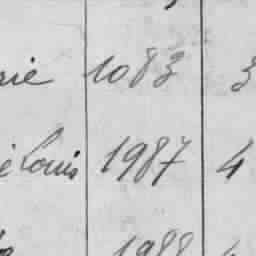 rie 1083 3
Louis 1987 4
1988